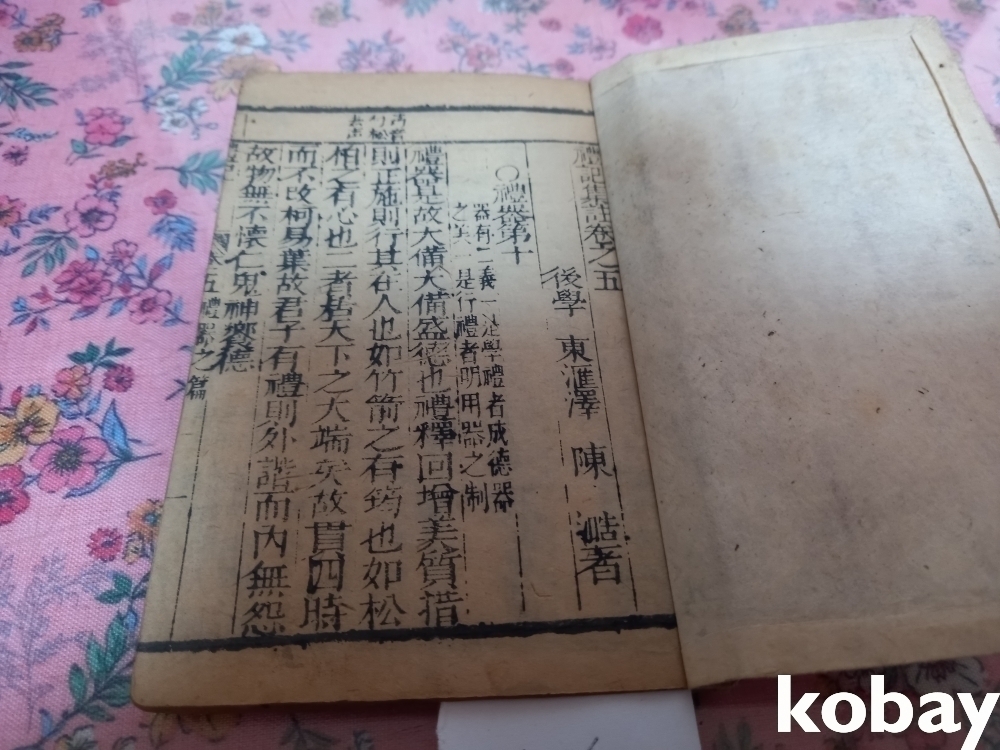 禮記集說卷之五
後學 東滙澤 陳 澔著
○禮器第十
器有二義一是學禮者成德器
之美一是行禮者明用器之制
禮器是故大備大備盛德也禮釋回增美質措
則正施則行其在人也如竹箭之有筠也如松
柏之有心也二者居天下之大端矣故貫四時
而不改柯易葉故君子有禮則外諧而內無怨
故物無不懷仁鬼神饗德
五 禮器之篇
kobay